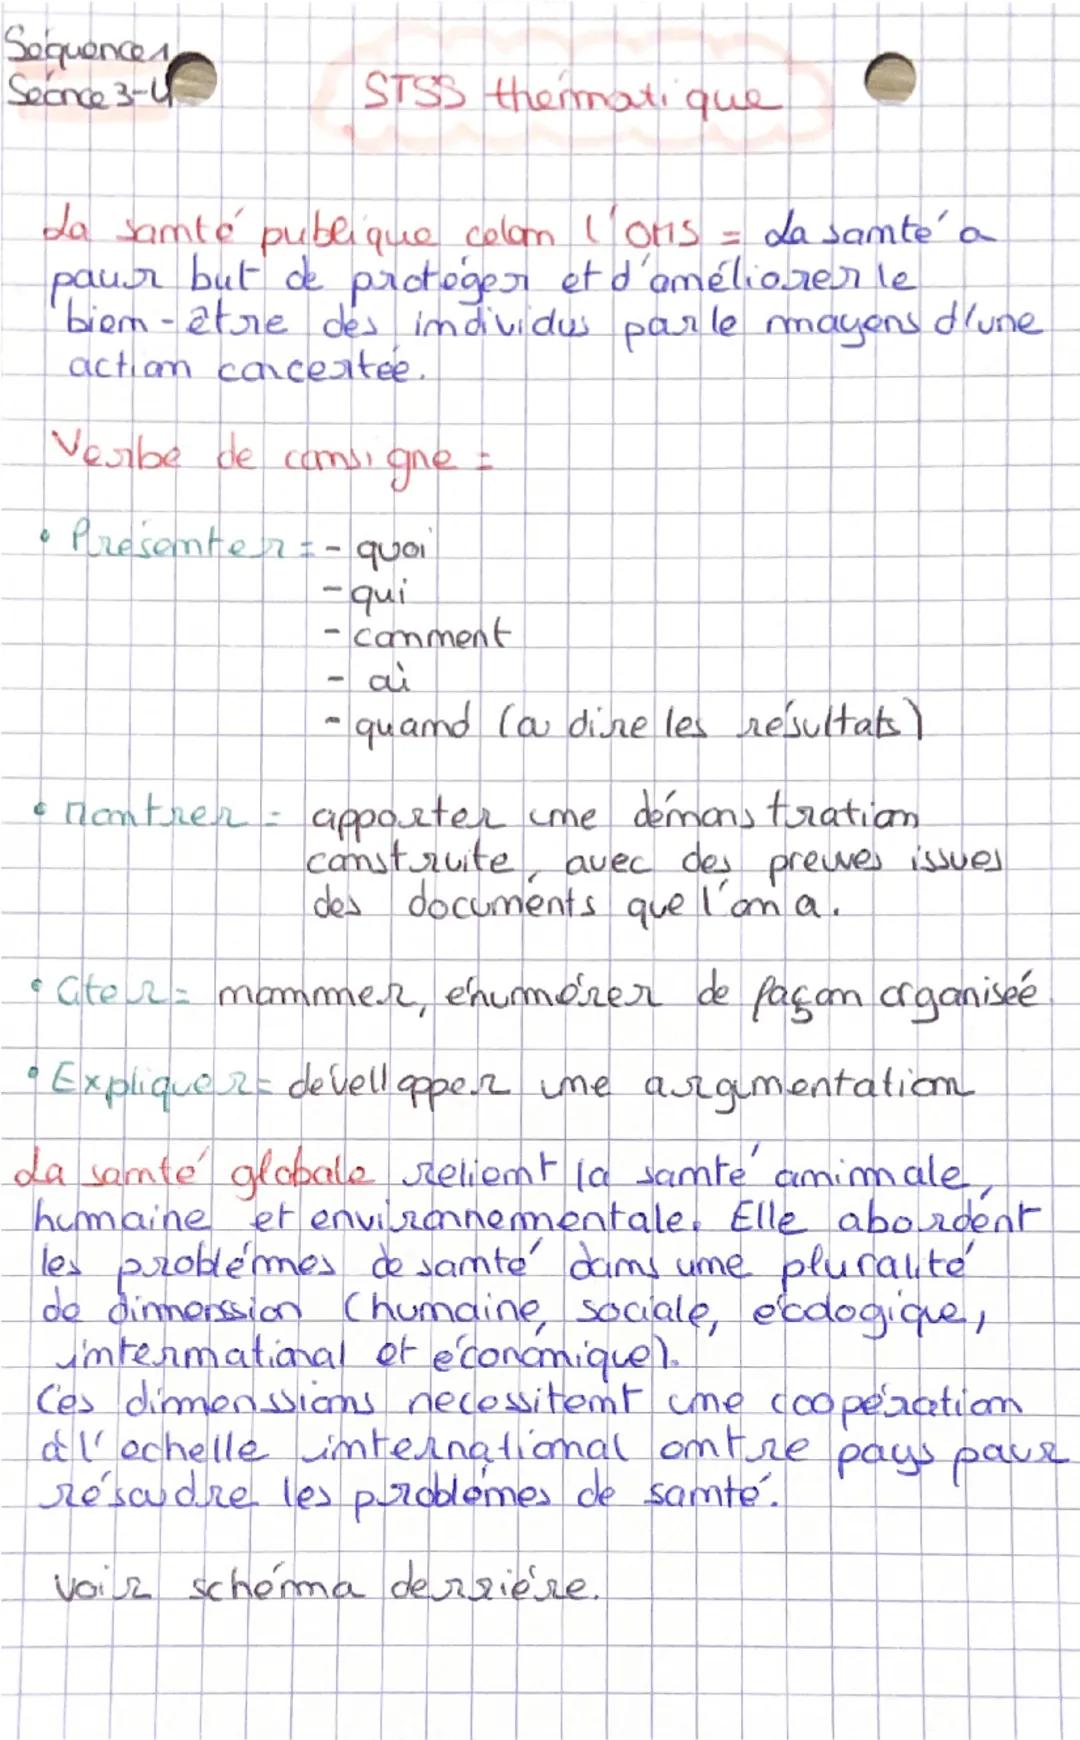 Séquence 1
Séance 3-4
STSS thématique
La santé publique selon l'OMS = La santé a
pour but de protéger et d'améliorer le
bien-être des individus par le moyens d'une
action concertée.
Verbe de consigne =
• Présenter = - quoi
- qui
- comment
- où
- quand (a dire les résultats)
• Montrer = apporter une démonstration
construite, avec des preuves issues
des documents que l'on a.
• Citer = nommer, énumérer de façon organisée
• Expliquer = dévellopper une argumentation
La santé globale relient la santé animale,
humaine et environnementale. Elle abordent
les problèmes de santé dans une pluralité
de dimenssion (humaine, sociale, écologique,
international et économique).
Ces dimenssions necessitent une coopération
à l'echelle international entre pays pour
résoudre les problèmes de santé.
voir schéma derrière.